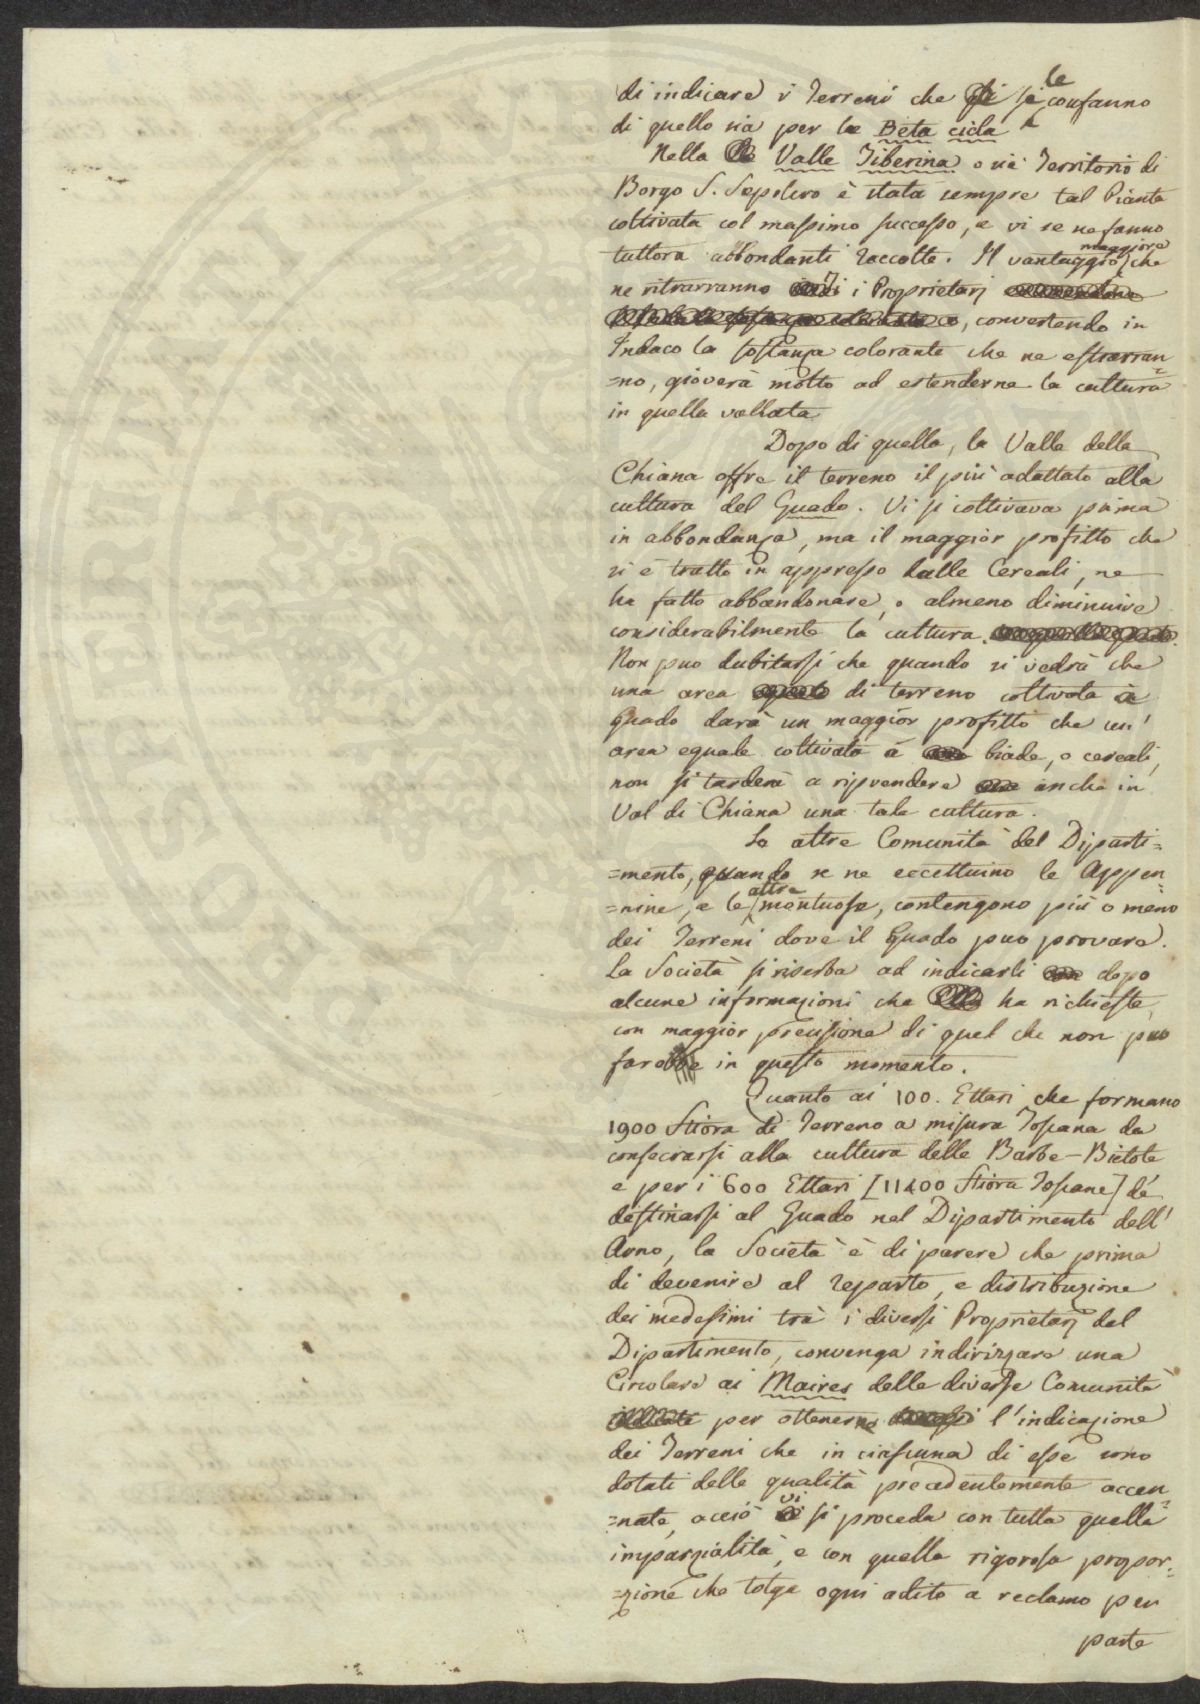 di indicare i Terreni che si le confanno
di quello sia per la Beta cicla
Nella Valle Tiberina o sia Territorio di
Borgo S. Sepolcro è stata sempre tal Pianta
coltivata col massimo successo, e vi se ne fanno
tuttora abbondanti raccolte. Il vantaggio maggiore che
ne ritrarranno i Proprietarj
, convertendo in
Indaco la sostanza colorante che ne estrarran=
=no, gioverà molto ad estenderne la cultura
in quella vallata
Dopo di quella, la Valle della
Chiana offre il terreno il più adattato alla
cultura del Guado. Vi si coltivava prima
in abbondanza, ma il maggior profitto che
si è tratto in appresso dalle Cereali, ne
ha fatto abbandonare, o almeno diminuire
considerabilmente la cultura.
Non può dubitarsi che quando si vedrà che
una area di terreno coltivata a
Guado darà un maggior profitto che un'
area eguale coltivata a biade, o cereali,
non si tarderà a riprendere anche in
Val di Chiana una tale cultura.
Le altre Comunità del Diparti=
=mento, quando se ne eccettuino le Appen=
=nine, e le altre montuose, contengono più o meno
dei Terreni dove il Guado può provare.
La Società si riserba ad indicarli dopo
alcune informazioni che ha richieste,
con maggior precisione di quel che non può
fare in questo momento.
Quanto ai 100. Ettari che formano
1900 Stiora di Terreno a misura Toscana da
consecrarsi alla cultura delle Barbe-Bietole
e per i 600 Ettari [11400 Stiora Toscane] da
destinarsi al Guado nel Dipartimento dell'
Arno, la Società è di parere che prima
di devenire al reparto, e distribuzione
dei medesimi trà i diversi Proprietarj del
Dipartimento, convenga indirizzare una
Circolare ai Maires delle diverse Comunità
per ottenerne l'indicazione
dei Terreni che in ciascuna di esse sono
dotati delle qualità precedentemente accen=
=nate, acciò vi si proceda con tutta quella
imparzialità, e con quella rigorosa propor=
=zione che tolga ogni adito a reclamo per
parte